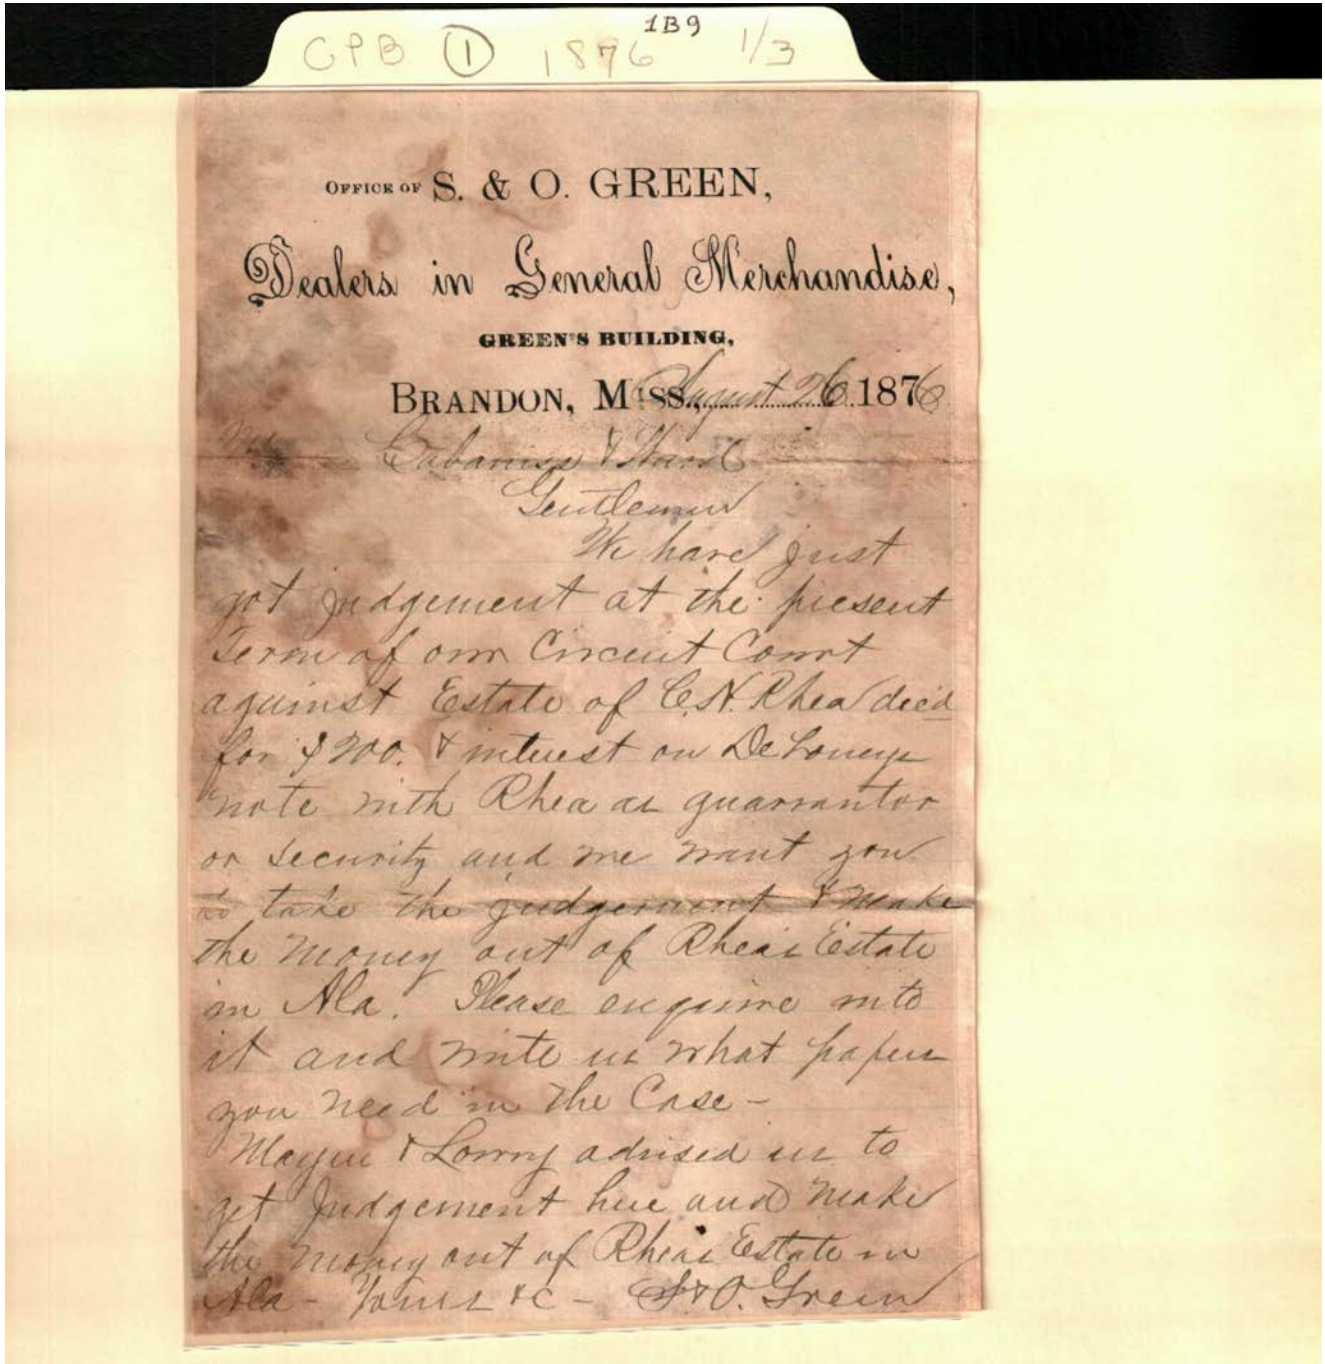 CPB ① 1876 1B9 1/3
OFFICE OF S. & O. GREEN,
Dealers in General Merchandise,
GREEN'S BUILDING,
BRANDON, MISS., August 26 1876
Cabaniss & Ward
Gentlemen
We have just
got judgement at the present
Term of our Circuit Court
against Estate of C.N. Rhea dec'd
for $200. & interest on
note with Rhea as guarrantor
or security and we want you
to take the judgement & make
the money out of Rheas Estate
in Ala. Please enquire into
it and write us what papers
you need in the Case –
& Lowry advised us to
get Judgement here and make
the money out of Rheas Estate in
Ala – Yours &c – S & O. Green